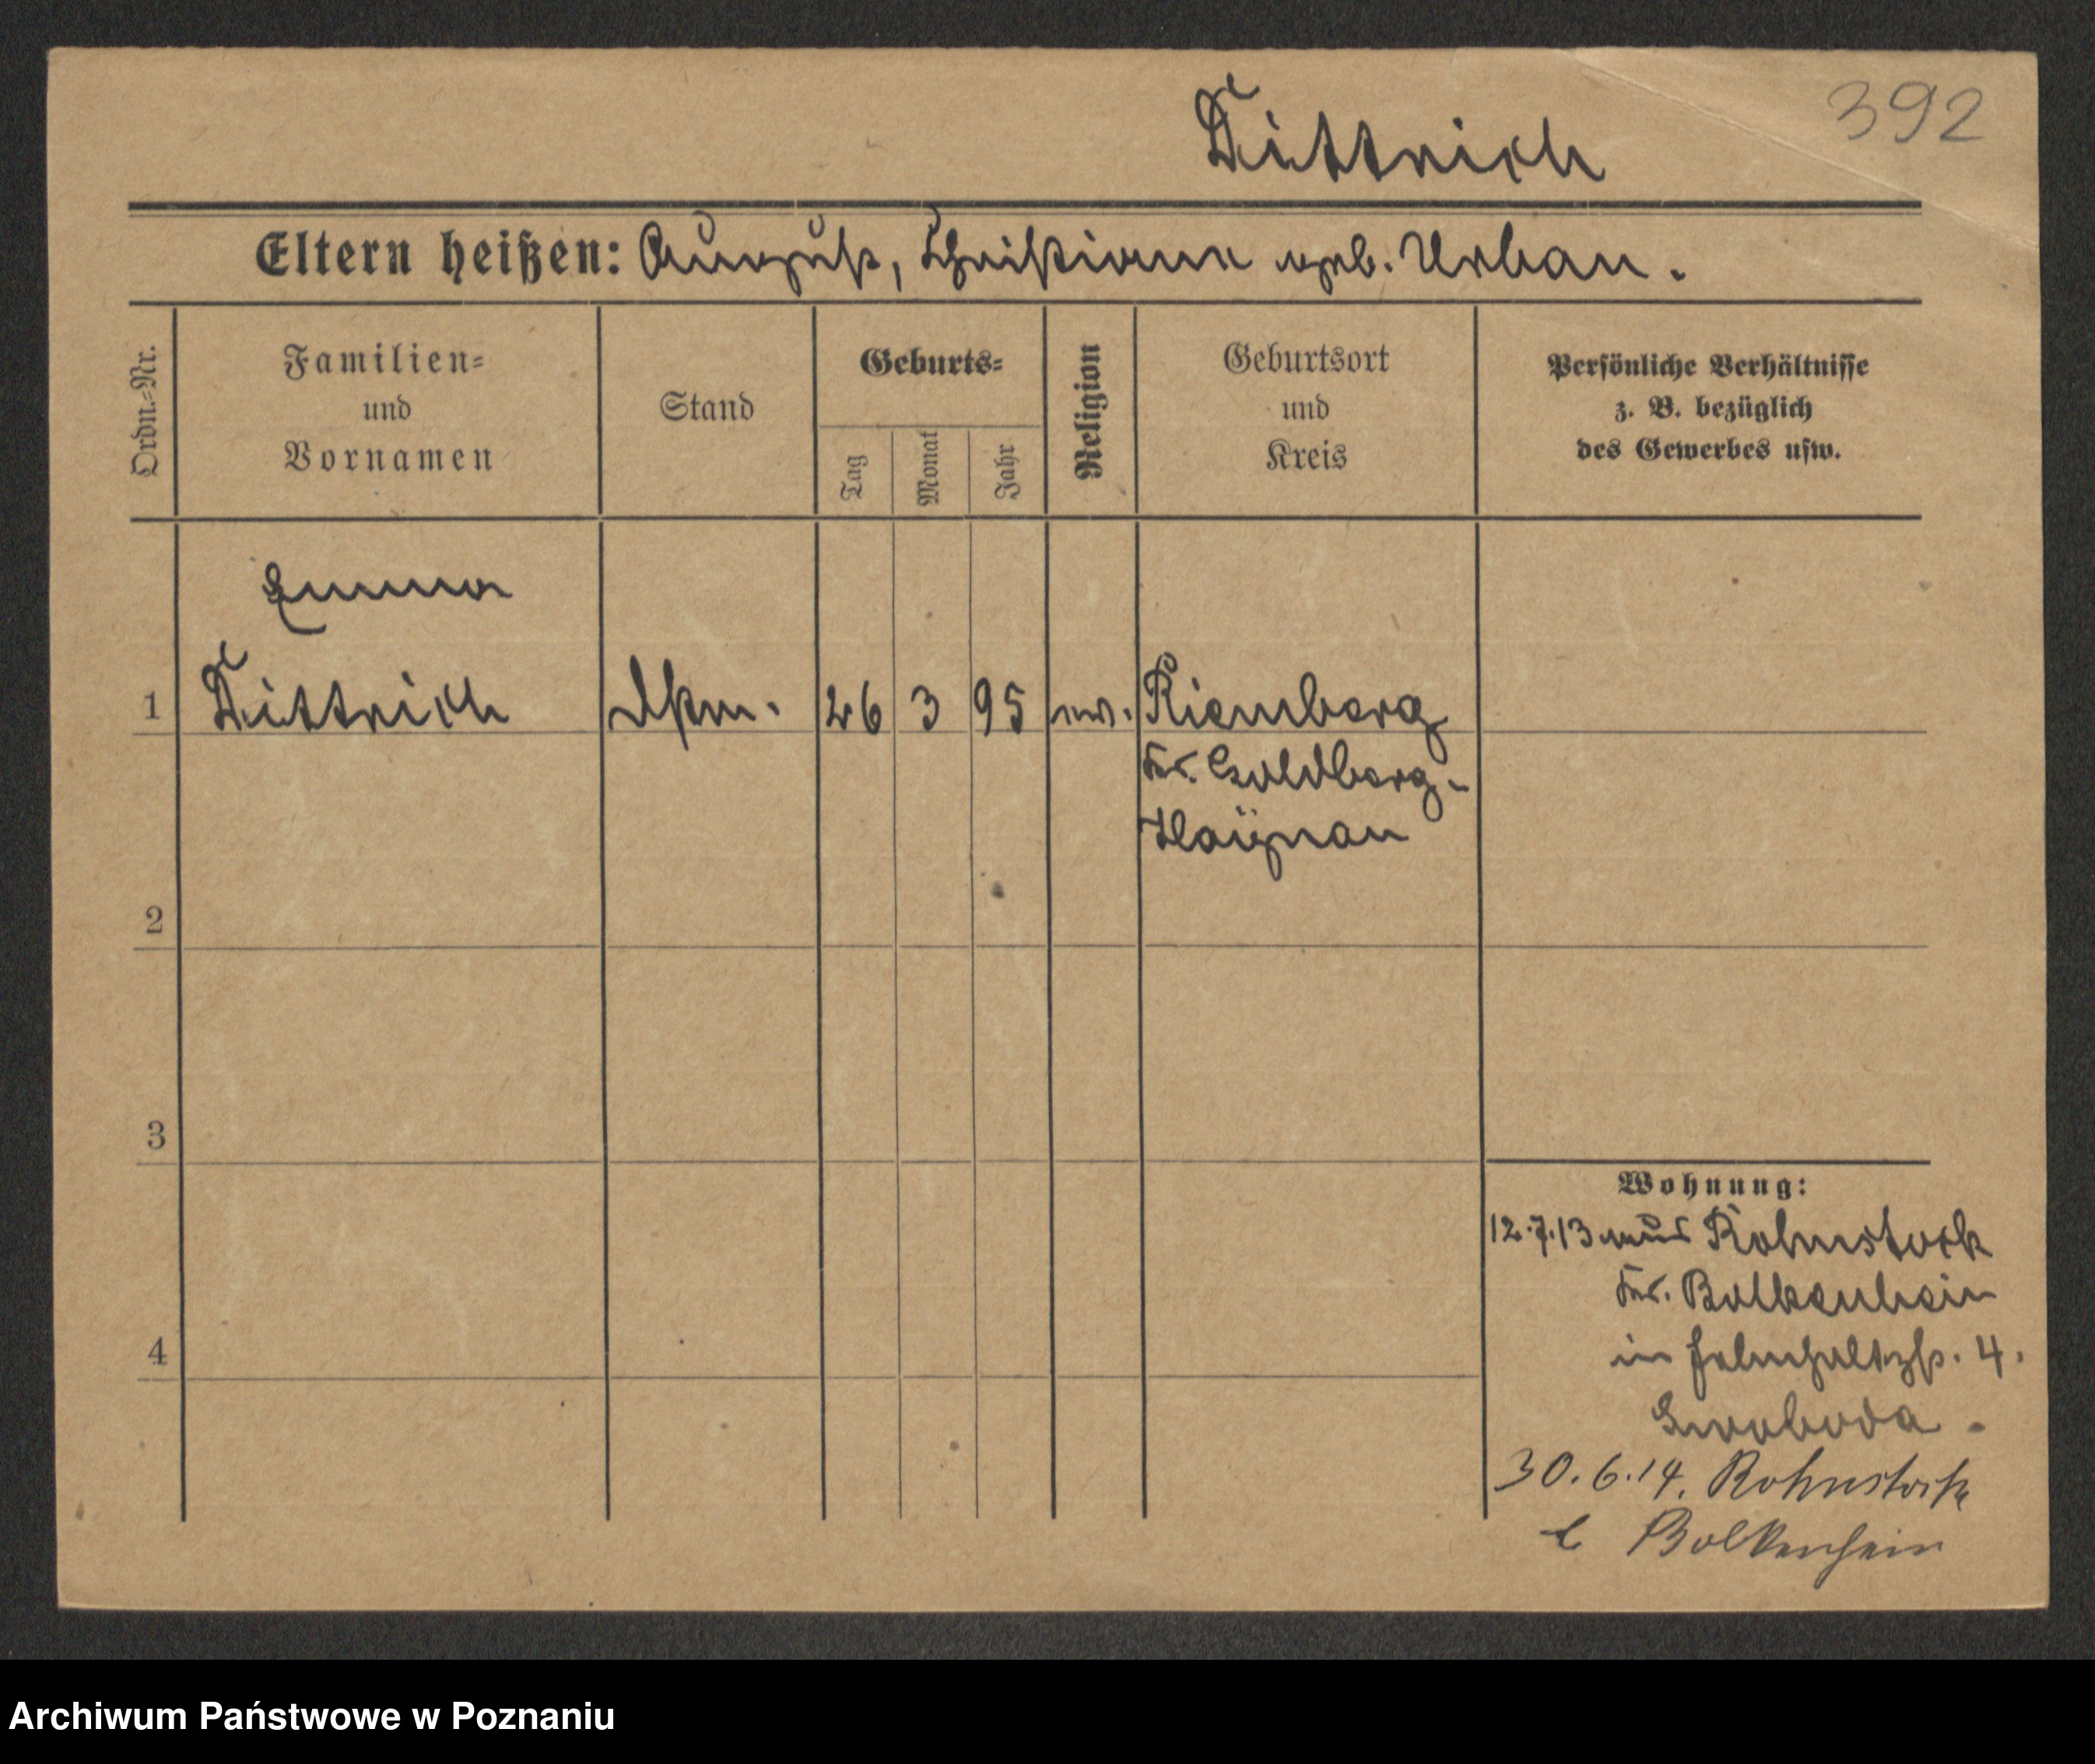 392
Dittrich
Eltern heißen: August, Christiane geb. Urban.
Ordn.-Nr.
Familien-
und
Vornamen
Stand
Geburts-
Tag
Monat
Jahr
Religion
Geburtsort
und
Kreis
Persönliche Verhältnisse
z. B. bezüglich
des Gewerbes usw.
Emma
1 Dittrich Dstm. 26 3 95 ev. Riemberg
Kr. Goldberg-
Haÿnau
2
3
4
Wohnung:
12.7.13 aus Rohnstock
Kr. Bolkenhain
in 4.
Swoboda.
30.6.14. Rohnstock
Bolkenhain
Archiwum Państwowe w Poznaniu